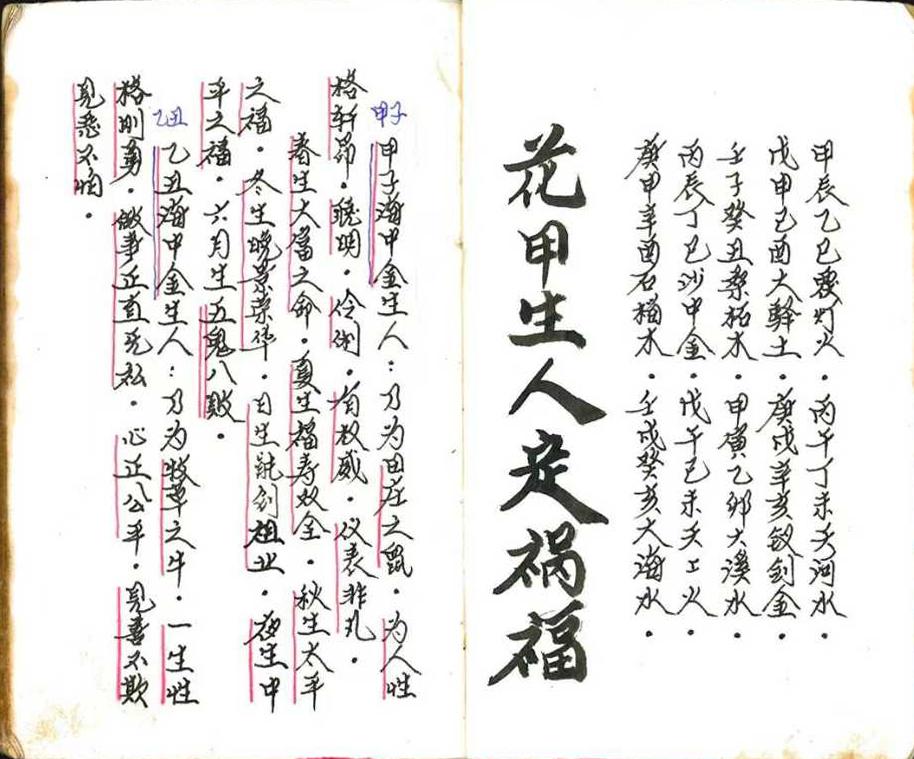 甲辰乙巳覆灯火．丙午丁未天河水．
戊申己酉大驿土．庚戌辛亥钗钏金．
壬子癸丑桑柘木．甲寅乙卯大溪水．
丙辰丁巳沙中金．戊午己未天上火．
庚申辛酉石榴木．壬戌癸亥大海水．
花甲生人定祸福
甲子 甲子海中金生人：乃为田庄之鼠．为人性
格轩昂．聪明．伶俐．有权威．仪表非凡．
春生大富之命．夏生福寿双全．秋生太平
之福．冬生晚景荣华．日生就创祖业．夜生中
平之福．六月生五鬼八败．
乙丑 乙丑海中金生人：乃为牧草之牛．一生性
格刚勇．做事正直无私．心正公平．见善不欺
见恶不怕．